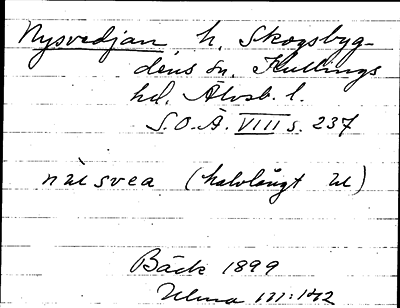 Nysvedjan h. Skogsbyg-
dens sn. Kullings
hd. Älvsb. l.
S.O.Ä. VIII s. 237
svea (halvlångt
Bäck 1899
Ulma 111:142